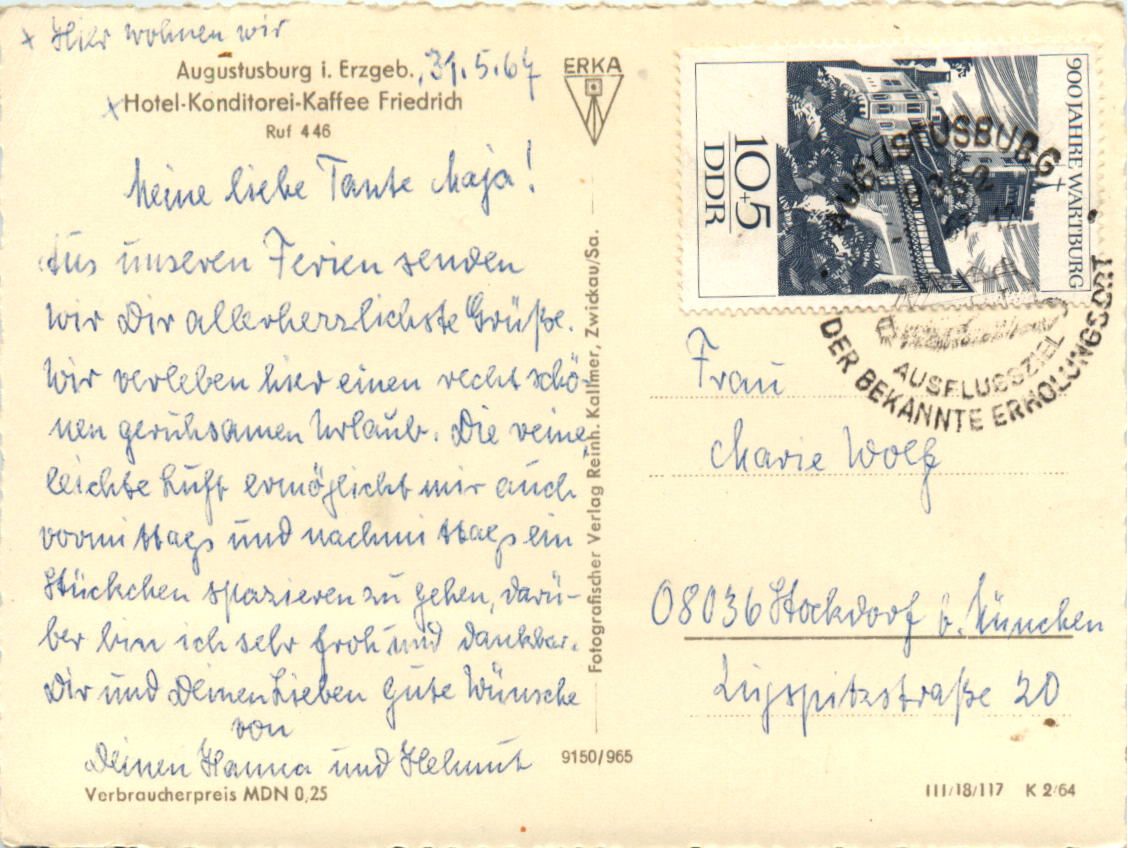 x Hier wohnen wir
Augustusburg i. Erzgeb., 31.5.67
x Hotel-Konditorei-Kaffee Friedrich
Ruf 446
Meine liebe Tante Maja!
Aus unseren Ferien senden
wir Dir allerherzlichste Grüße.
Wir verleben hier einen recht schö-
nen geruhsamen Urlaub. Die reine,
leichte Luft ermöglicht mir auch
vormittags und nachmittags ein
Stückchen spazieren zu gehen, darü-
ber bin ich sehr froh und dankbar.
Dir und Deinen Lieben gute Wünsche
von
Deinen Hanna und Helmut
Verbraucherpreis MDN 0,25
ERKA
Fotografischer Verlag Reinh. Kallmer, Zwickau/Sa.
9150/965
900 JAHRE WARTBURG
10+5
DDR
AUGUSTUSBURG
9382
AUSFLUGSZIEL
DER BEKANNTE ERHOLUNGSORT
Frau
Marie Wolf
08036 Stockdorf b. München
Zugspitzstraße 20
III/18/117 K 2/64